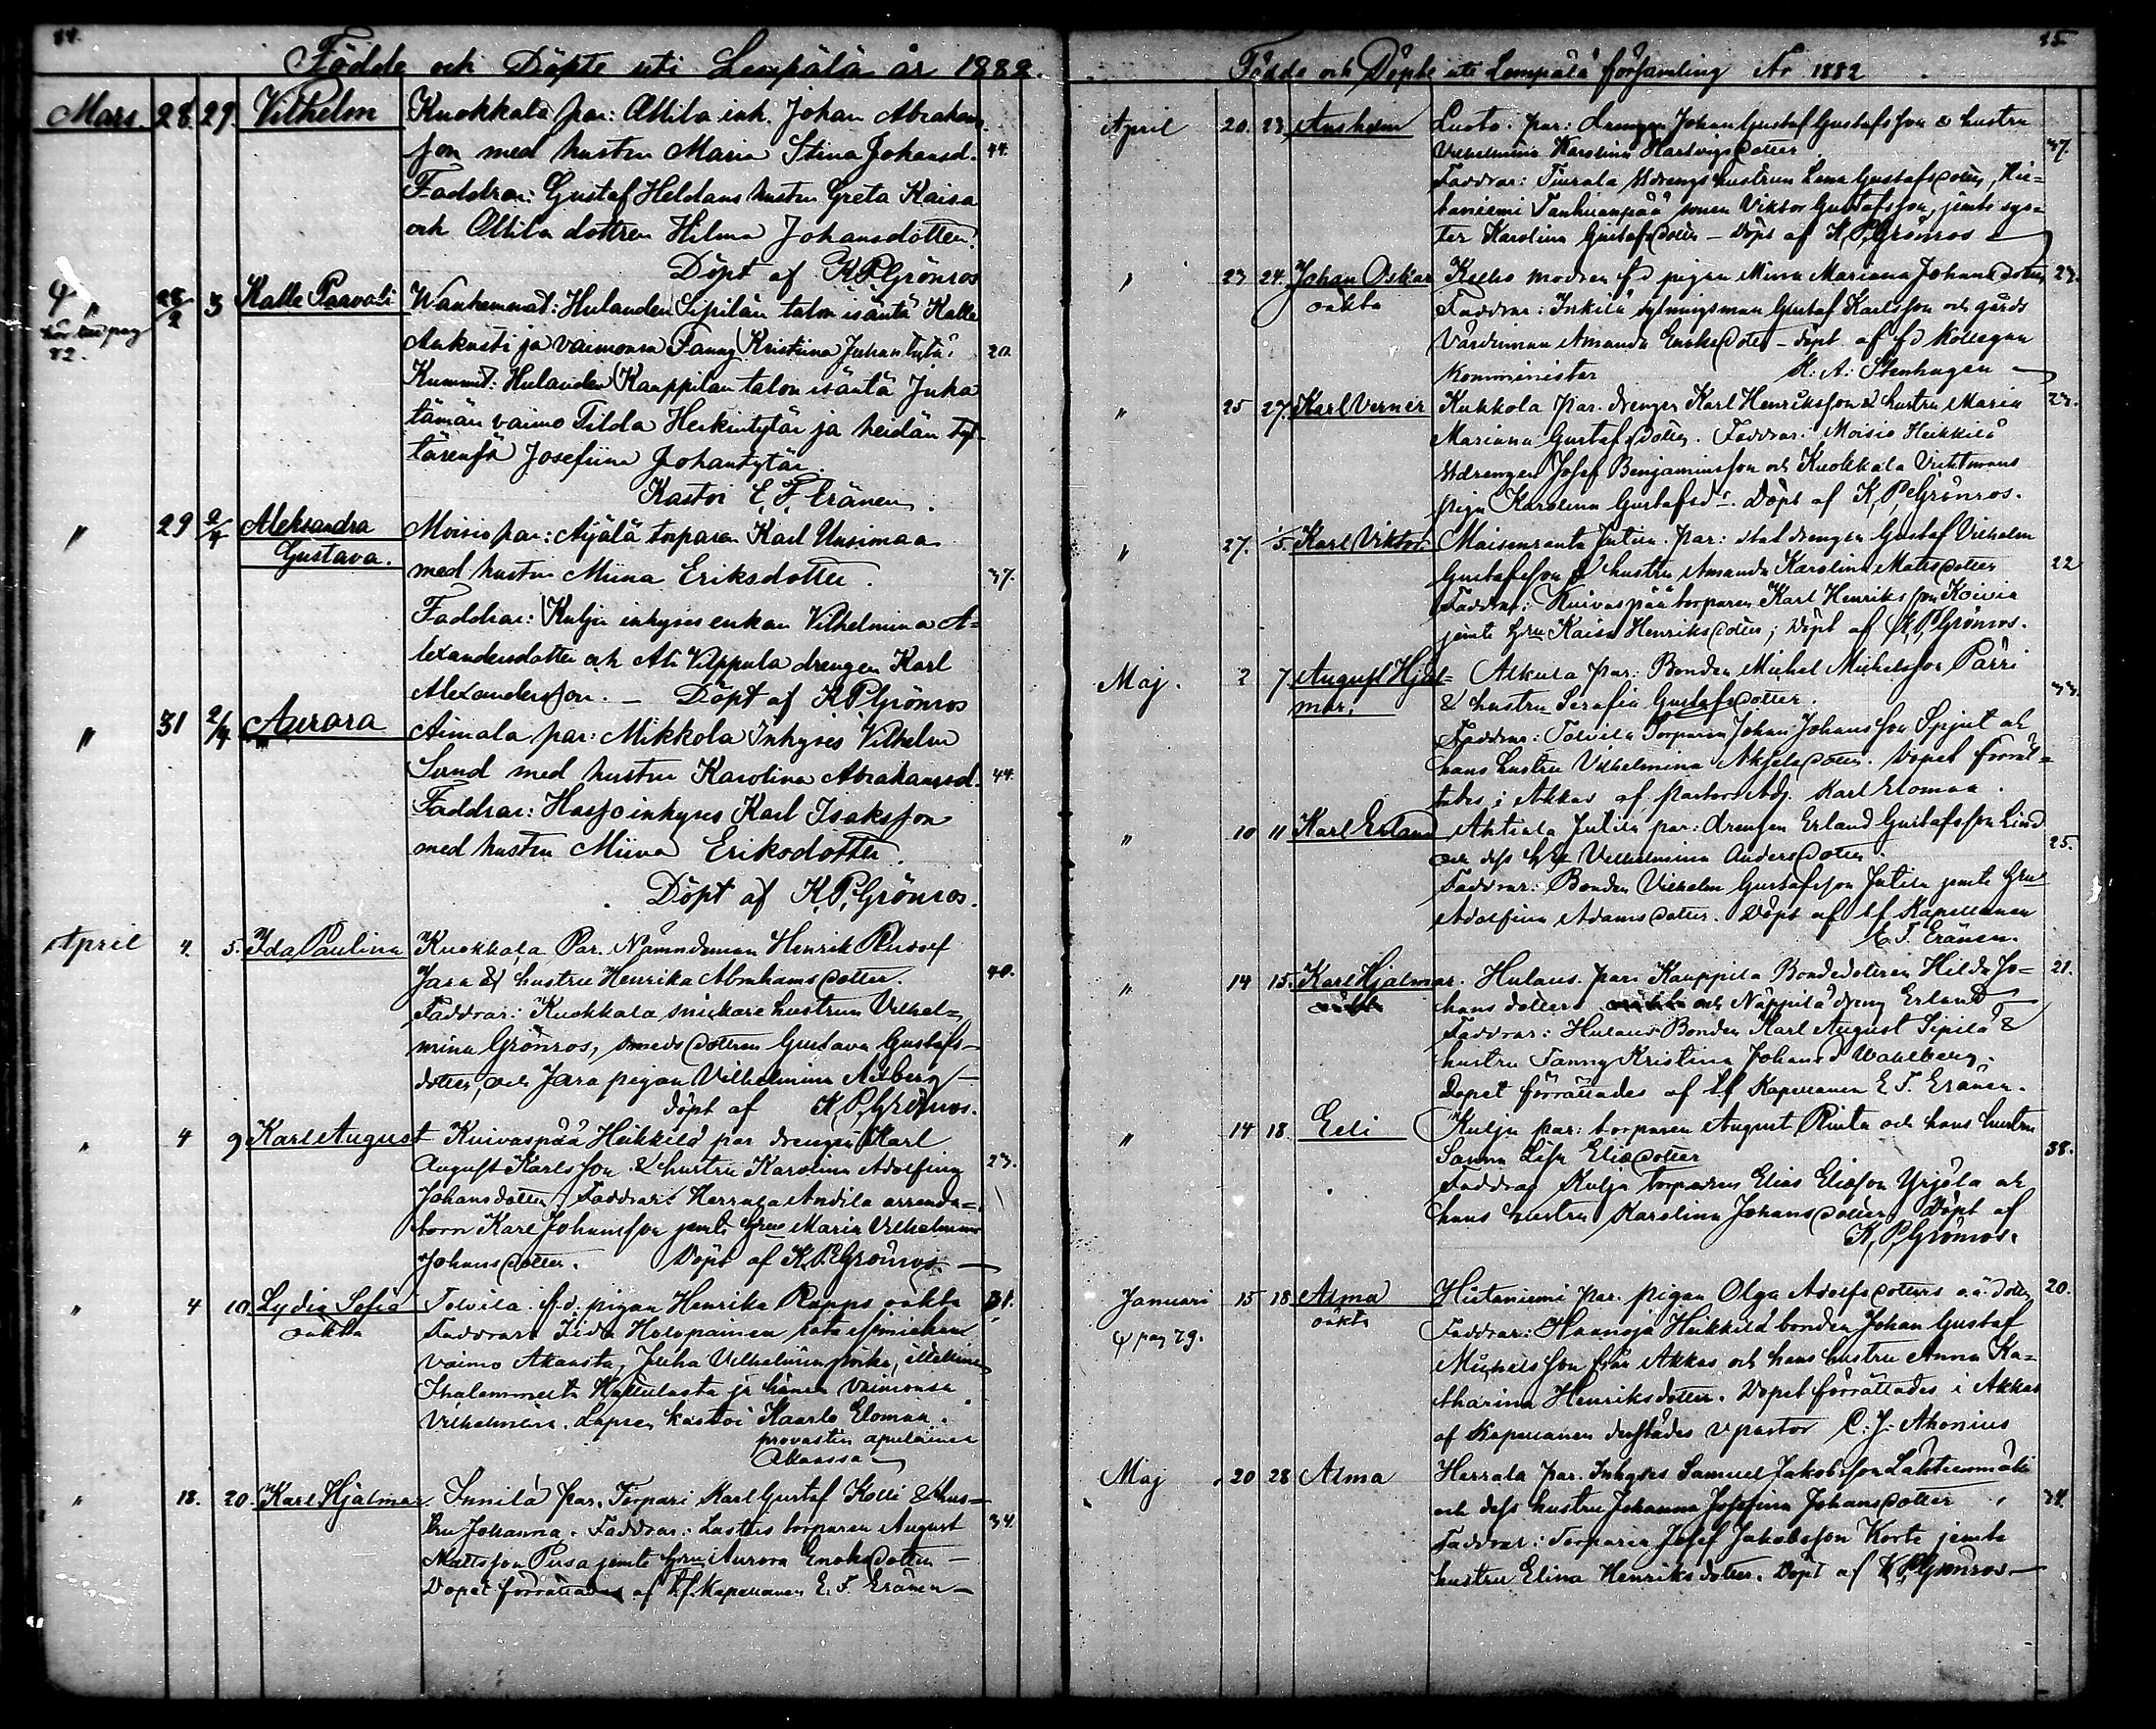 84.
Födde och Döpte uti Lempälä år 1882.
Mars 28. 29. Vilhelm Kuokkala par: Attila inh. Johan Abrahams-
son med hustru Maria Stina Johansd. 44.
Faddrar: Gustaf Heldans hustru Greta Kaisa
och Attila dottren Hilma Johansdotter.
Döpt af K. P. Grönroos
" 28/2 3 Kalle Paavali Wanhemmat: Hulauden Sipilän talon isäntä Kalle
pag 82.
Aukusti ja vaimonsa Fanny Kristiina Juhantytär 20.
Kummit: Hulauden Kauppilan talon isäntä Juha
tämän vaimo Tilda Heikintytär ja heidän tyt-
tärensä Josefiina Johantytär.
Kastoi E. F. Eränen.
" 29 2/4 Aleksandra Moisio par: Äijälä torparen Karl Uusimaa
Gustava. med hustru Miina Eriksdotter. 37.
Faddrar: Kulju inhyses enkan Vilhelmina A-
lexandersdotter och Ali Vilppula drengen Karl
Alexandersson. — Döpt af K. P. Grönroos
" 31 2/4 Aurora Aimala par: Mikkola Inhyses Vilhelm
Sund med hustru Karolina Abrahamsd. 44.
Faddrar: Harjo inhyses Karl Isaksson
med hustru Miina Eriksdotter.
Döpt af K. P. Grönroos.
April 4. 5. Ida Paulina Kuokkala Par. Nämndeman Henrik Rudolf
Jara & hustru Henrika Abrahamsdotter. 40.
Faddrar: Kuokkala snickare hustrun Vilhel-
mina Grönroos, smeds dottren Gustava Gustafs-
dotter, och Jara pigan Vilhelmina Adberg —
döpt af K. P. Grönroos.
" 4 9 Karl August Kuivaspää Heikkilä par drengen Karl
August Karlsson & hustru Karolina Adolfina 23.
Johansdotter, Faddrar: Herrala Andila arrenda-
torn Karl Johansson jemte hru Maria Vilhelmina
Johansdotter. Döpt af K. P. Grönroos —
" 4 10. Lydia Sofia Tolvila f.d. pigan Henrika Rapps oäkta 31.
oäkta Faddrar: Iida Holopainen
vaimo Akaasta, Juha Vilhelmiinpoika, itsellinen
Ihalammelta Hattulasta ja hänen vaimonsa
Vilhelmiina. Lapsen kastoi Kaarlo Elomaa.
provastin apulainen
Akaassa
" 18. 20. Karl Hjalmar. Innilä par. Torpari Karl Gustaf Kolli & hus-
tru Johanna. Faddrar: Lastus torparen August 34.
Mattsson Pusa jemte hru Aurora Enoksdotter —
Dopet förrättades af t.f. Kapellanen E. F. Eränen —
85.
Födde och Döpte uti Lempälä församling År 1882
April 20. 23, Ansholm Luoto. par: Drengen Johan Gustaf Gustafsson & hustru
Vilhelmina Karolina Hartvigsdotter 37.
Faddrar: Tiurala Uldrengs hustrun Lena Gustafsdotter, Hie-
taniemi Tanhuanpää sonen Viktor Gustafsson, jemte sys-
ter Karolina Gustafsdotter — Döpt af K. P. Grönroos
" 23 24. Johan Oskar Kelho modren f.d. pigan Miina Mariana Johansdotter 23.
oäkta Faddrar: Inkilä sytningsman Gustaf Karlsson och gårds
Värdinnan Amanda Enoksdotter — Döpt af f.d. Kollegan
Komminister K. A. Stenhagen
" 25 27. Karl Verner Kukkola Par. drengen Karl Henriksson & hustru Maria 23.
Mariana Gustafsdotter. Faddrar: Moisio Heikkilä
Uldrengen Josef Benjaminsson och Kuokkala
pigan Karolina Gustafsdr. Döpt af K. P. Grönroos.
" 27. 1/5. Karl Viktor. Maisenranta Jutila. Par: statdrengen Gustaf Vilhelm
Gustafsson & hustru Amanda Karolina Matsdotter 22
Faddrar: Kuivaspää torparen Karl Henriksson Koivia
jemte hru Kaisa Henriksdotter; Döpt af K. P. Grönroos.
Maj. 2 7 August Hjal- Alkula par: Bonden Mikel Mickelsson Pärri
mar. & hustru Serafia Gustafsdotter. 33
Faddrar: Tolvila Torparen Johan Johansson Spjut och
hans hustru Vilhelmina Akselsdotter. Dopet förrät-
tades i Akkas af pastors Adj. Karl Elomaa.
" 10 11 Karl Erland Ahtiala Jutila par: drengen Erland Gustafsson Lind
och dess hru Vilhelmina Andersdotter. 25.
Faddrar: Bonden Vilhelm Gustafsson Jutila jemte hru
Adolfina Adamsdotter. Döpt af t.f. Kapellanen
E. F. Eränen.
" 14 15. Karl Hjalmar. Hulaus. par: Kauppila Bondedottren Hilda Jo- 21.
hansdotter och Näppilä dreng Erland —
Faddrar: Hulaus Bonden Karl August Sipilä &
hustru Fanny Kristina Johansd Wahlberg.
Dopet förrättades af t.f. Kapellanen E. F. Eränen.
" 14 18. Eeli Kulju par: torparen August Rinta och hans hustru
Sanna Lisa Eliasdotter 38.
Faddrar Kulju torparen Elias Eliasson Yrjölä och
hans hustru Karolina Johansdotter. Döpt af
K. P. Grönroos.
Januari 15 18 Alma Hietaniemi par. pigan Olga Adolfsdotters o.ä. dotter 20.
pag 79. oäkta Faddrar: Haansja Heikkilä bonden Johan Gustaf
Michelsson från Akkas och hans hustru Anna Ka-
tharina Henriksdotter. Dopet förrättades i Akkas
af Kapellanen derstädes vpastor C. J. Ahonius
Maj 20 28 Alma Herrala par. Inhyses Samuel Jakobsson Lahtienmäki
och dess hustru Johanna Josefina Johansdotter 34.
Faddrar: Torparen Josef Jakobsson Korte jemte
hustru Elina Henriksdotter. Döpt af K. P. Grönroos —